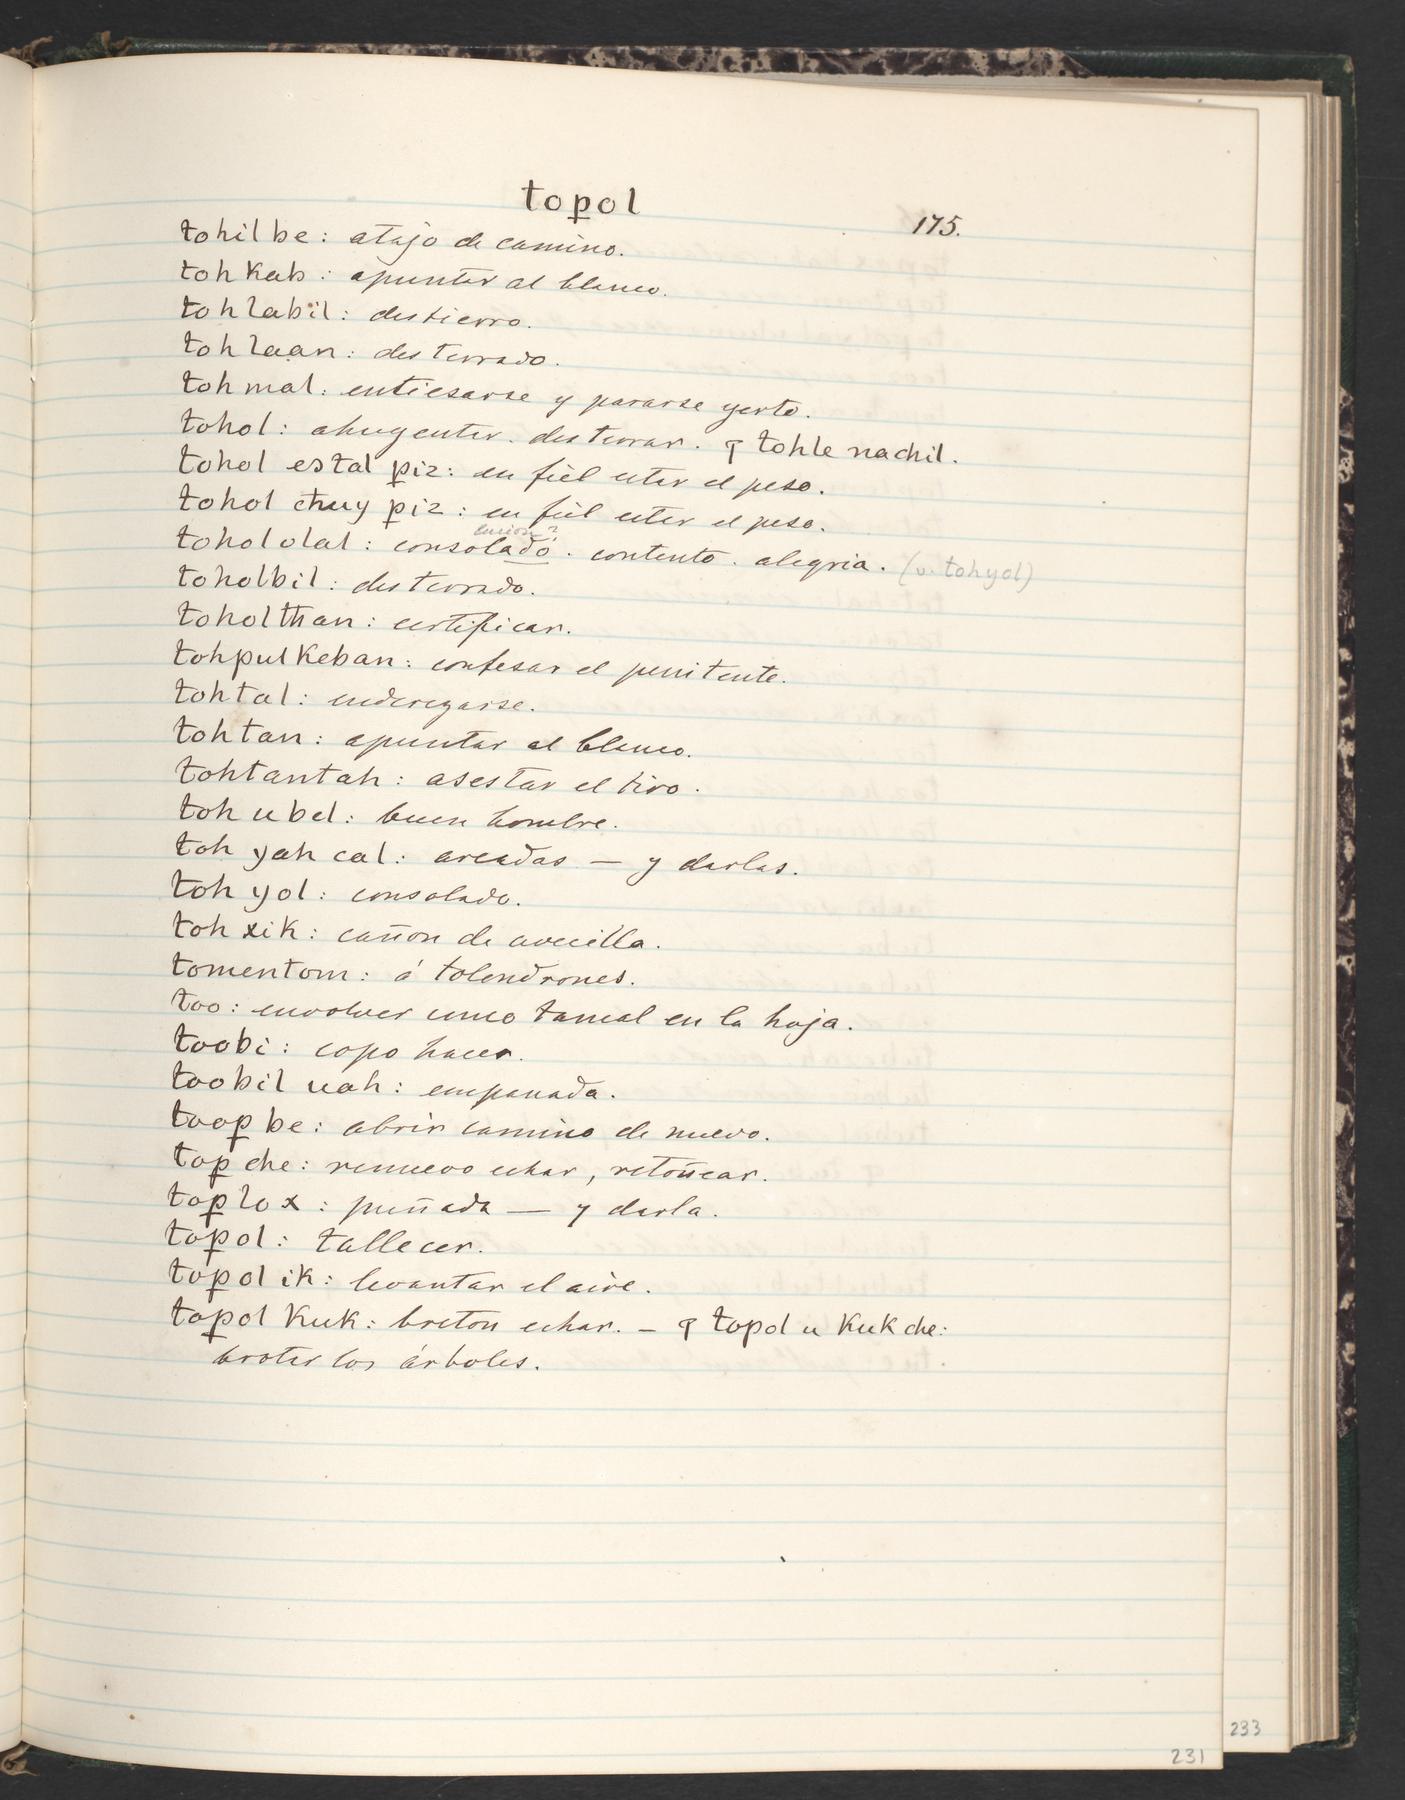 topol
175.
tohil be: atajo de camino.
toh kab: apuntar al blanco.
tohlabil: destierro.
tohlaan: desterrado.
toh mal: entiesarse y pararse yerto.
tohol: ahuyentar. desterrar. ¶ tohle nachil.
tohol estal piz: en fiel estar el peso.
tohol chuy piz: en fiel estar el peso.
tohololal: consolado. contento. alegria. (v. tohyol)
toholbil: desterrado.
toholthan: certificar.
tohpul keban: confesar el penitente.
tohtal: enderezarse.
tohtan: apuntar al blanco.
tohtantah: asestar el tiro.
toh u bel: buen hombre.
toh yah cal: arcadas — y darlas.
toh yol: consolado.
toh xik: cañon de avecilla.
tomentom: á tolondrones.
too: envolver como tamal en la hoja.
toobi: copo hacer.
toobil uah: empanada.
toop be: abrir camino de nuevo.
top che: renuevo echar, retoñear.
top lox: puñada — y darla.
topol: tallecer.
topol ik: levantar el aire.
topol kuk: breton echar. – ¶ topol u kuk che:
brotar los árboles.
233
231